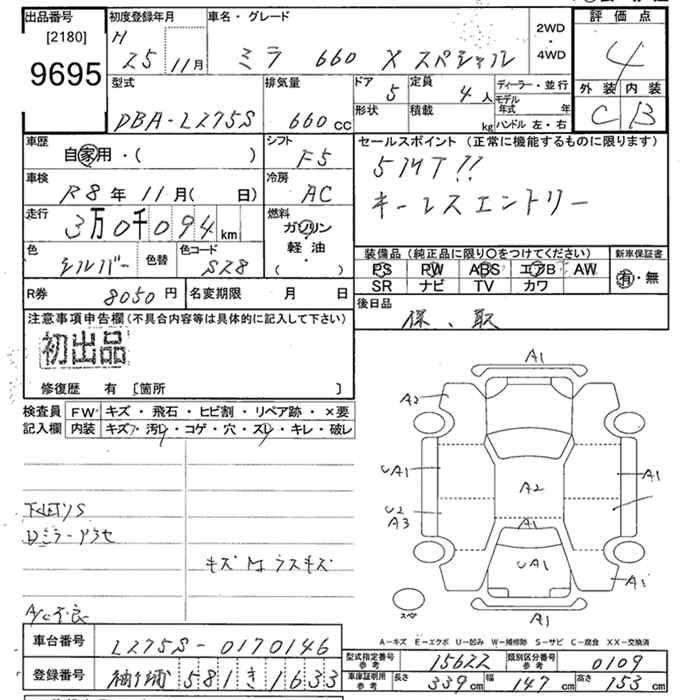 出品番号
[2180]
9695
初度登録年月
H 25 11月
車名・グレード
ミラ 660 X スペシャル
2WD
・
4WD
評価点
4
外装 内装
C B
型式
DBA-L275S
排気量
660 CC
ドア 5
形状
定員 4人
積載 kg
ディーラー・並行
モデル年式 年
ハンドル 左・右
車歴
自家用・( )
シフト
F5
車検
R8年 11月( 日)
冷房
AC
走行
3万0千094 km
燃料
ガソリン
軽・油
( )
色
シルバー
色替
色コード
S28
セールスポイント (正常に機能するものに限ります)
5MT!!
キーレスエントリー
装備品 (純正品に限り○をつけてください)
PS PW ABS エアB AW
SR ナビ TV カワ
新車保証書
有・無
R券 8050円
名変期限 月 日
後日品
保、取
注意事項申告欄(不具合内容等は具体的に記入して下さい)
初出品
修復歴 有 [箇所 ]
検査員記入欄
FW キズ・飛石・ヒビ割・リペア跡・×要
内装 キズ・汚レ・コゲ・穴・スレ・キレ・破レ
下廻りS
キズ
A/C不良
A1
A2
UA1
A1
U2
A3
A2
A1
UA1
A1
A1
スペ
A-キズ E-エクボ U-凹み W-補修跡 S-サビ C-腐食 XX-交換済
車台番号
L275S-0170146
登録番号
581き1633
型式指定番号
参考
15622
類別区分番号
参考
0109
車庫証明用
参考
長さ 339cm
幅 147cm
高さ 153cm